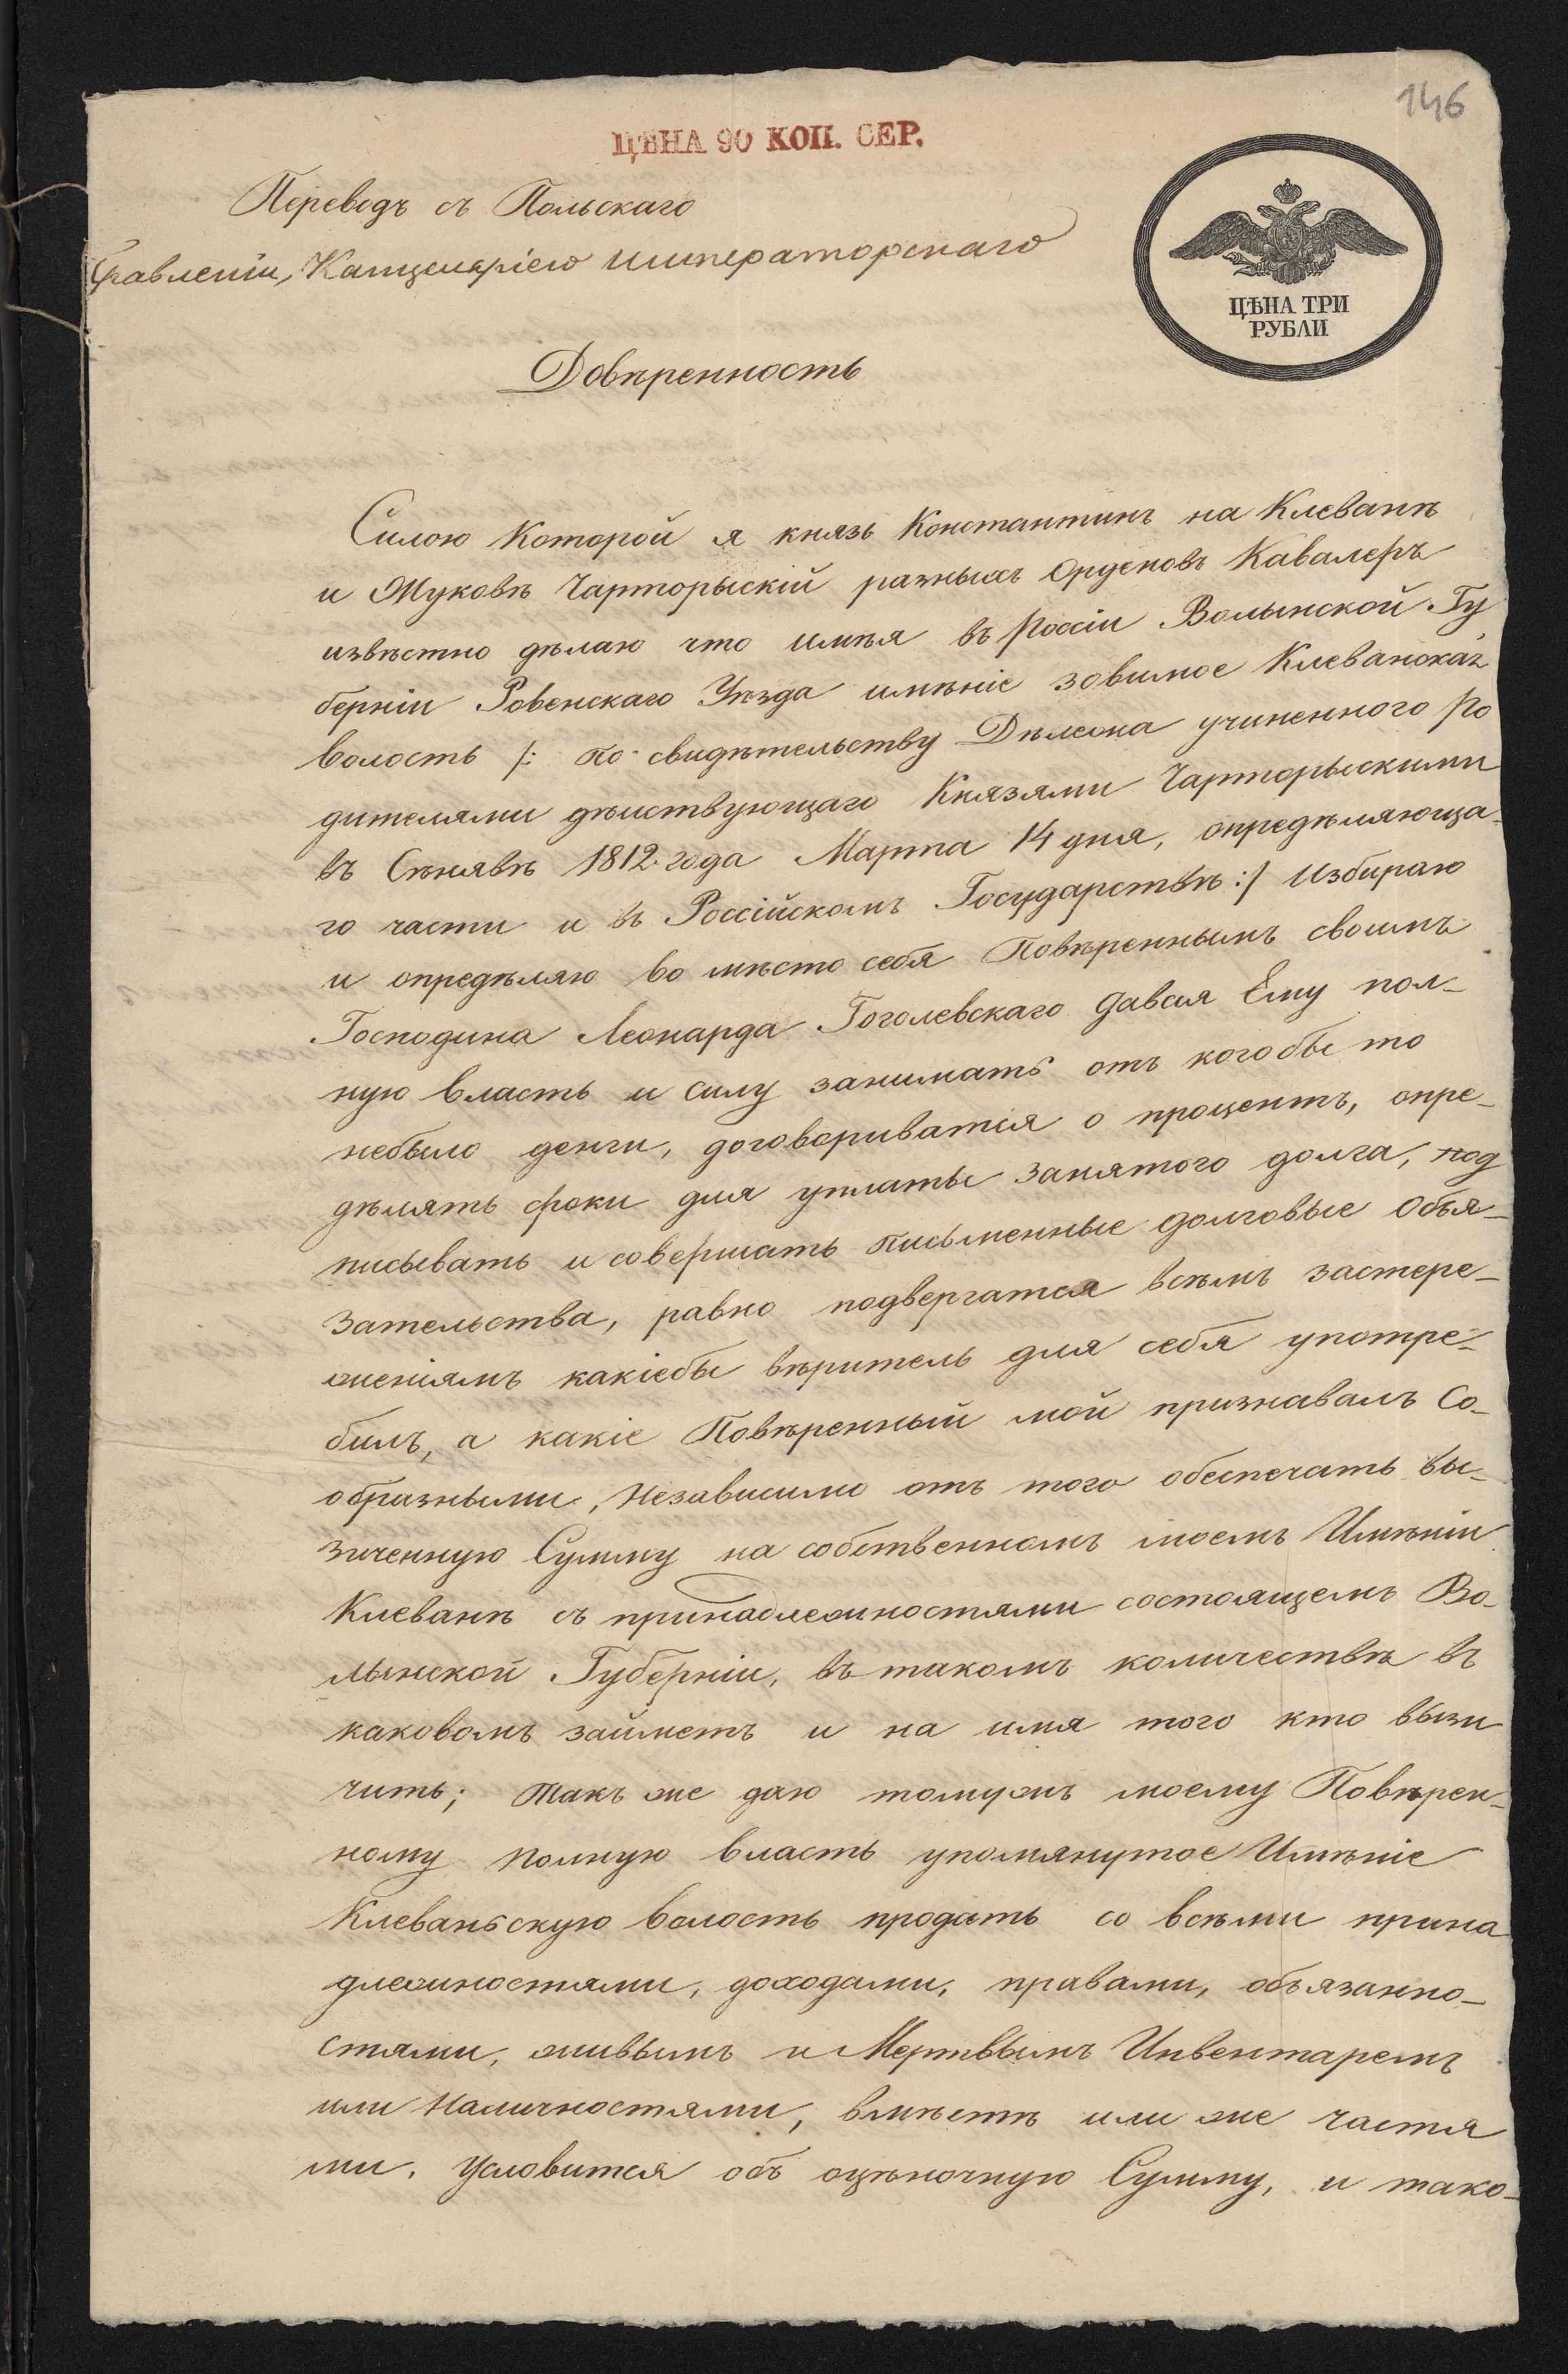 146
ЦѢНА 90 КОП. СЕР.
Переводъ съ Польскаго
Правленіи, Канцеляріею императорскаго
ЦѢНА ТРИ
РУБЛИ
Довѣренность
Силою Которой я князь Константинъ на Клеванѣ
и Жуковѣ Чарторыскій разныхъ Орденовъ Кавалеръ
извѣстно дѣлаю что имѣя въ Россіи Волынской Гу
берніи Ровенскаго Уѣзда имѣніе зовимое Клеванская
волость /: по свидѣтельству Дѣлежа учиненного Ро
дителями дѣйствующаго Князями Чарторыскими
въ Сѣнявѣ 1812. года Марта 14 дня, опредѣляюща-
го части и въ Россійскомъ Государствѣ :/ Избираю
и опредѣляю во мѣсто себя Повѣреннымъ своимъ
Господина Леонарда Гоголевскаго давая Ему пол-
ную власть и силу занимать отъ кого бы то
небыло денги, договориватся о процентъ, опре-
дѣлять сроки для уплаты занятого долга, под
писывать и совершать писменные долговые Обья-
зательства, равно подвергатся всѣмъ застере-
женіямъ какіебы вѣритель для себя употре-
билъ, а какіе Повѣренный мой признавалъ Со-
образными, Независимо отъ того обеспечать вы-
зиченную Сумму на собственномъ моемъ Имѣніи
Клеванѣ съ принадлежностями состоящемъ Во-
лынской Губерніи, въ такомъ количествѣ въ
каковомъ займетъ и на имя того кто вызи
читъ; Такъ же даю томужъ моему Повѣрен-
ному полную власть упомянутое Имѣніе
Клеваньскую волость продать со всѣми прина
длежностями, доходами, правами, объязанно-
стями, живымъ и Мертвымъ Инвентаремъ
или Наличностями, вмѣстѣ или же частя
ми. Условится объ оцѣночную Сумму, и тако-